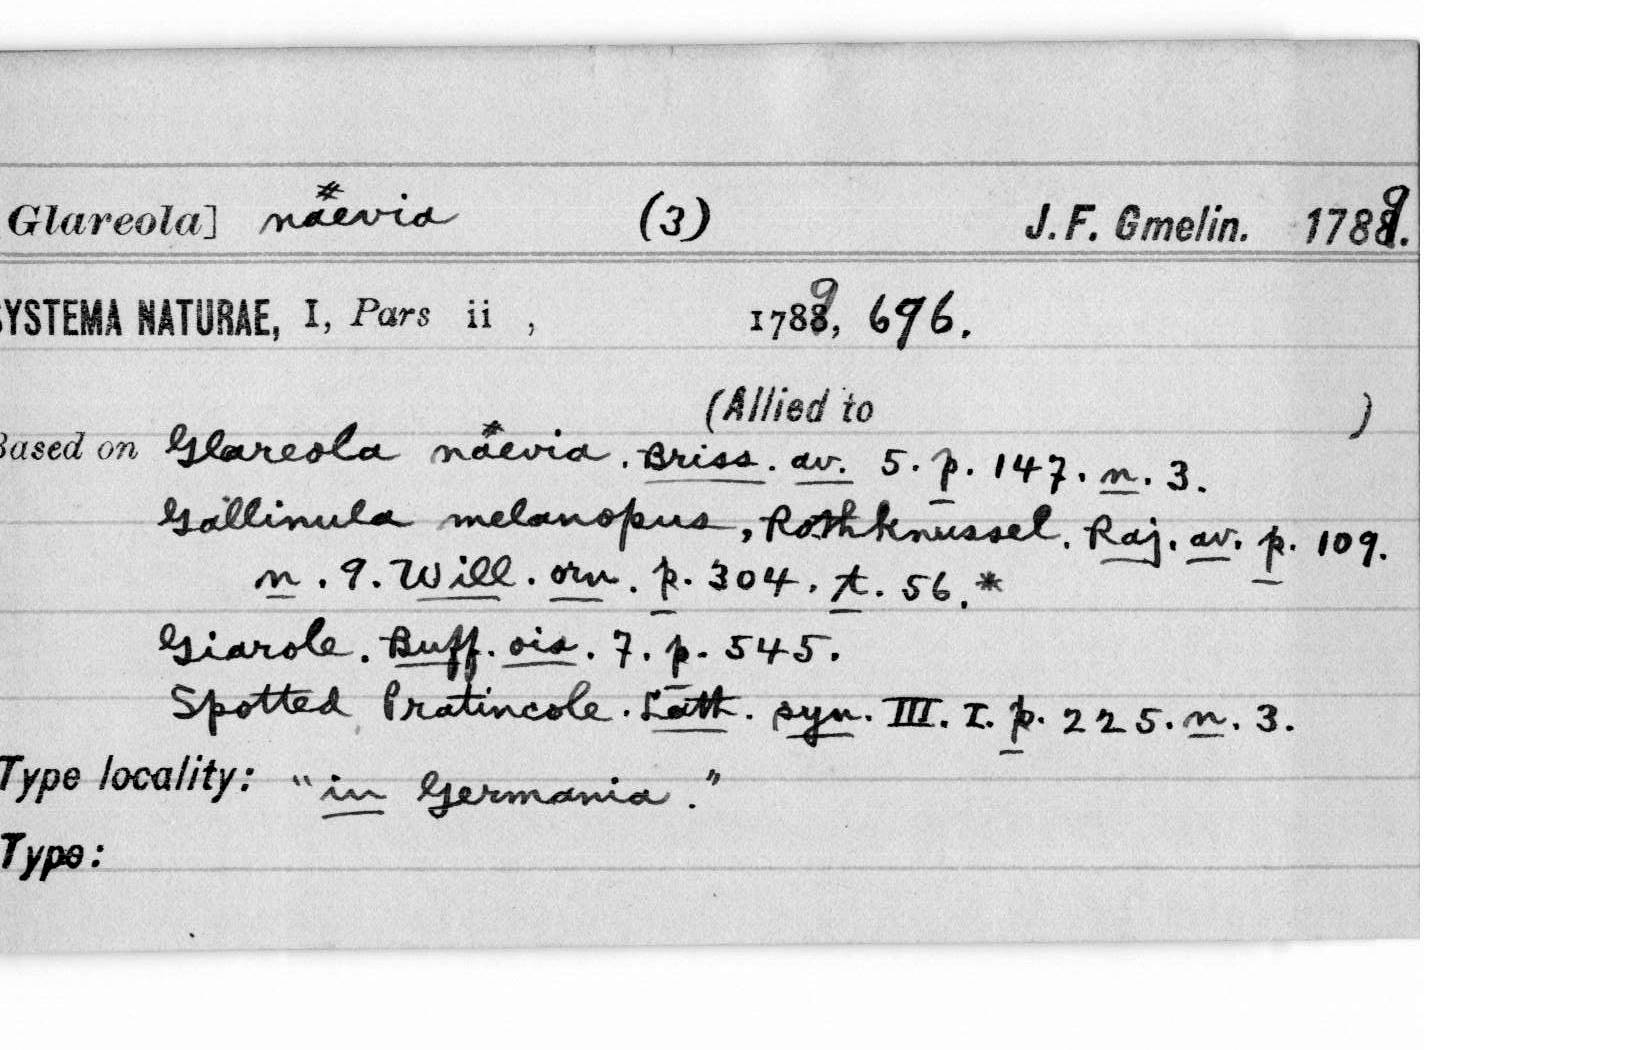 Glareola] naevia (3) J. F. Gmelin. 1789.
SYSTEMA NATURAE, I, Pars ii , 1789, 696.
(Allied to )
Based on Glareola naevia. Briss. av. 5. p. 147. n. 3.
Gallinula melanopus, Rothknussel. Raj. av. p. 109.
n. 9. Will. orn. p. 304. t. 56.*
Giarole. Buff. ois. 7. p. 545.
Spotted Pratincole. Lath. syn. III. I. p. 225. n. 3.
Type locality: "in Germania."
Type: